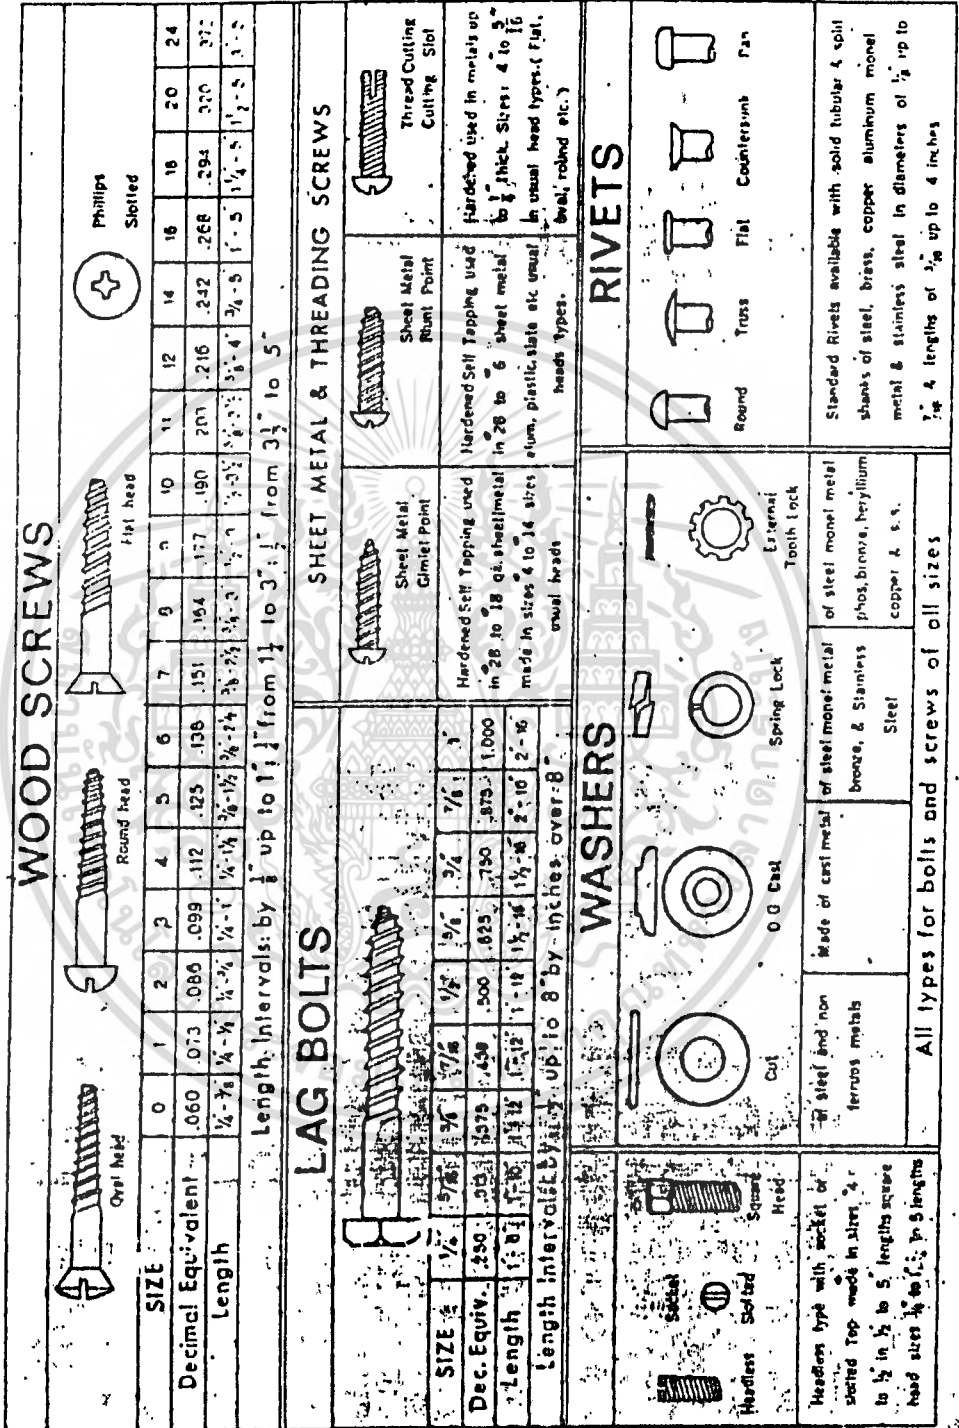 WOOD SCREWS
Oval head
Round head
Flat head
Phillips
Slotted
SIZE 0 1 2 3 4 5 6 7 8 9 10 11 12 14 16 18 20 24
Decimal Equivalent .060 .073 .086 .099 .112 .125 .138 .151 .164 .177 .190 .203 .216 .242 .268 .294 .320 .372
Length 1/4 - 3/8 1/4 - 1/2 1/4 - 3/4 1/4 - 1" 1/4 - 1 1/2 3/8 - 1 1/2 3/8 - 2 1/4 3/8 - 2 1/2 3/4 - 5 1" - 5" 1 1/4 - 5 1 1/2 - 5 3" - 5
Length Intervals: by 1/8" up to 1"; 1/4" from 1 1/4 to 3"; 1/2" from 3 1/2" to 5"
LAG BOLTS
SIZE 1/4 5/16 3/8 7/16 1/2 5/8 3/4 7/8 1"
Dec. Equiv. .250 .313 .375 .438 .500 .625 .750 .875 1.000
Length 1"-10 1"-12 1"-12" 1"-12 1 1/2-16 1 1/2-16 2"-16" 2"-16
Length Intervals: by 1/2" up to 8" by inches over 8"
SHEET METAL & THREADING SCREWS
Sheet Metal
Gimlet Point
Sheet Metal
Blunt Point
Thread Cutting
Cutting Slot
Hardened Self Tapping used
in 28 to 18 ga. sheet metal
made in sizes 4 to 14 sizes
usual heads
Hardened Self Tapping used
in 28 to 6 sheet metal
alum, plastic, slate etc usual
heads types.
Hardened used in metals up
to 1/4" thick. Sizes: 4 to 5/16"
in usual head types.( Flat,
oval, round etc.)
Headless
Socket
Slotted
Square
Head
Headless type with socket or
slotted Top made in sizes 4
to 1/2 in 1/2 to 5" lengths square
head sizes to in 5 lengths
WASHERS
Cut
O G Cast
Spring Lock
External
Tooth Lock
of steel and non
ferruss metals
Made of cast metal
of steel monel metal
bronze, & Stainless
Steel
of steel monel metal
phos, bronze, beryllium
copper & s.s.
All types for bolts and screws of all sizes
RIVETS
Round
Truss
Flat
Countersunk
Pan
Standard Rivets available with solid tubular & split
shanks of steel, brass, copper aluminum monel
metal & stainless steel in diameters of 1/8" up to
7/16" & lengths of 3/16" up to 4 inches